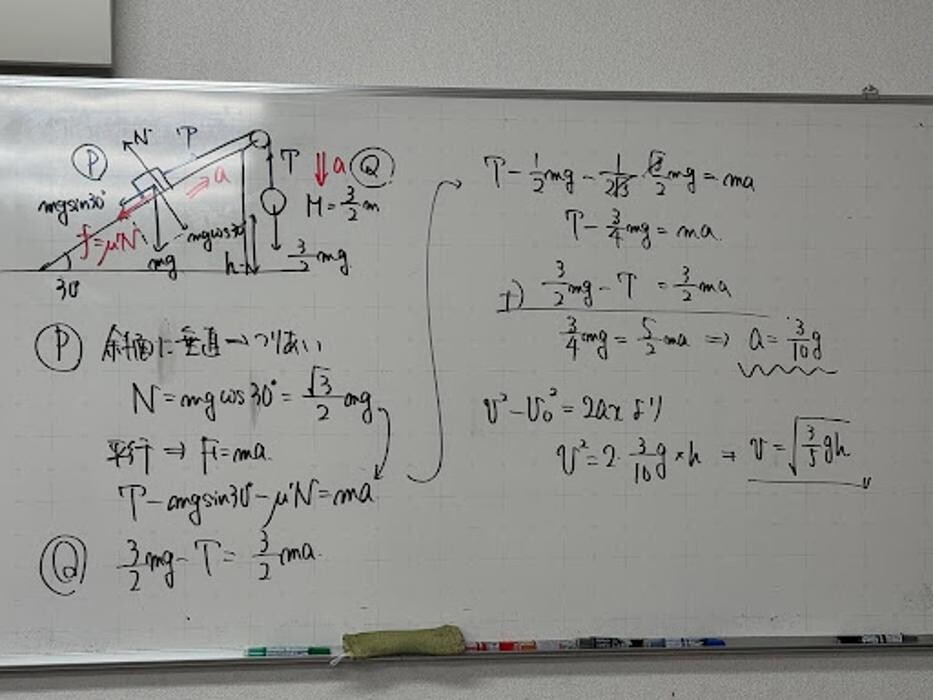 N T
Ⓟ T a Ⓠ
a
mgsin30° M=3/2 m
f=μ'N mgcos30°
mg h 3/2 mg
30°
Ⓟ 斜面に垂直→つりあい
N=mgcos30°=√3/2 mg
平行⇒F=ma
T-mgsin30°-μ'N=ma
Ⓠ 3/2 mg-T=3/2 ma
T-1/2 mg-1/2√3 √3/2 mg=ma
T-3/4 mg=ma
+) 3/2 mg-T=3/2 ma
3/4 mg=5/2 ma⇒a=3/10 g
v²-v₀²=2axより
v²=2・3/10 g×h⇒v=√3/5 gh